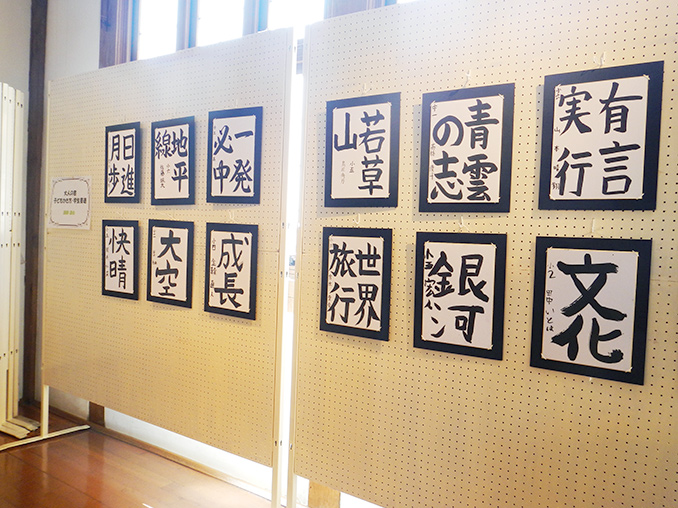 日進
月歩
地平
線
一発
必中
快晴
大空
成長
若草
山
青雲
の志
有言
実行
世界
旅行
銀河
文化
小2 田中いとは